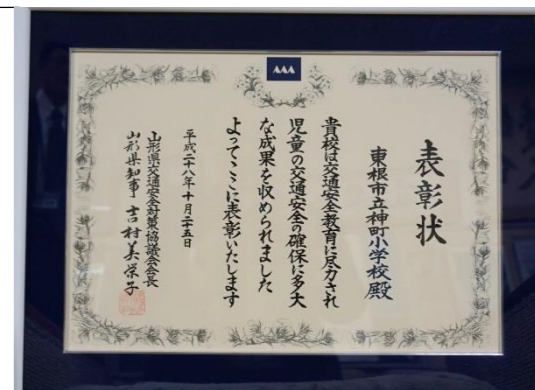 表彰状
東根市立神町小学校殿
貴校は交通安全教育に尽力され
児童の交通安全の確保に多大
な成果を収められました
よってここに表彰いたします
平成二十八年十月二十五日
山形県交通安全対策協議会会長
山形県知事 吉村美栄子